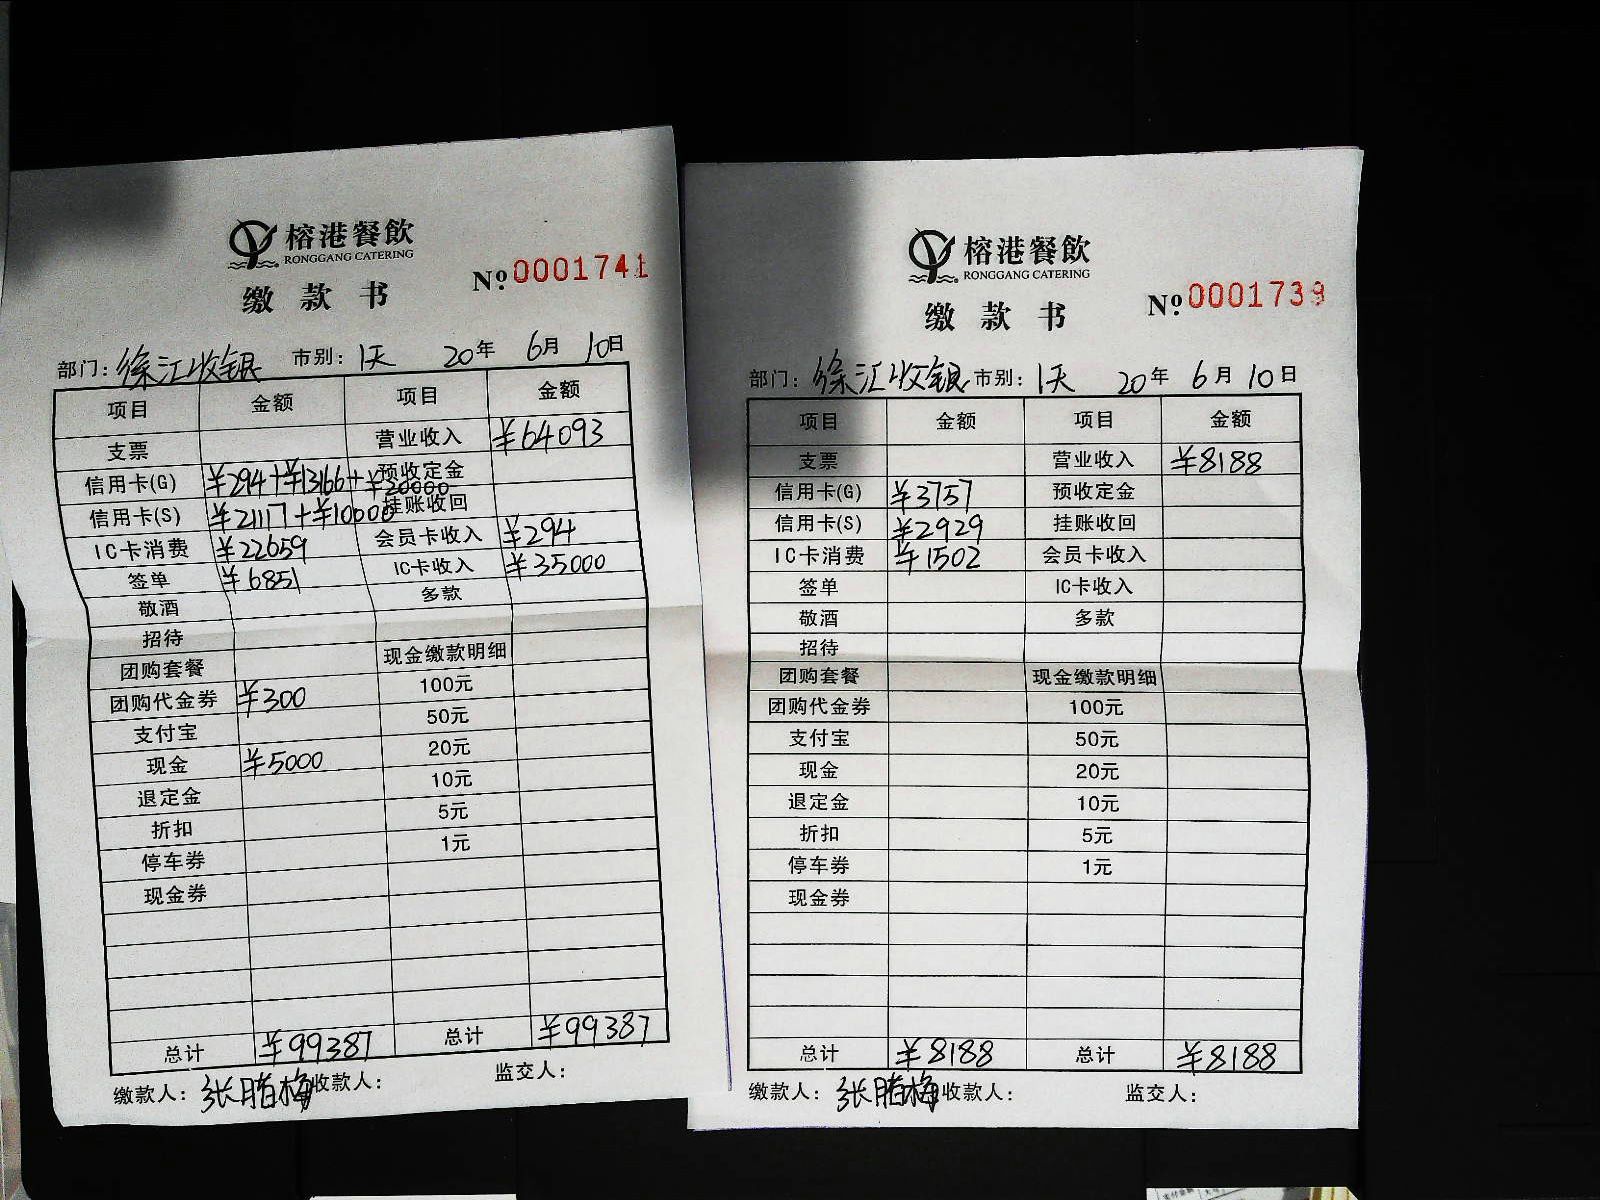 榕港餐飲
RONGGANG CATERING
缴款书
№ 0001741
部门：徐汇收银 市别：1天 20年 6月 10日
项目 金额 项目 金额
支票 营业收入 ¥64093
信用卡(G) ¥294+¥13166+¥20000 预收定金
信用卡(S) ¥21117+¥10000 挂账收回
IC卡消费 ¥22659 会员卡收入 ¥294
签单 ¥6851 IC卡收入 ¥35000
敬酒 多款
招待
团购套餐 现金缴款明细
团购代金券 ¥300 100元
支付宝 50元
现金 ¥5000 20元
退定金 10元
折扣 5元
停车券 1元
现金券
总计 ¥99387 总计 ¥99387
缴款人：张腊梅 收款人： 监交人：
榕港餐飲
RONGGANG CATERING
缴款书
№ 0001739
部门：徐汇收银 市别：1天 20年 6月 10日
项目 金额 项目 金额
支票 营业收入 ¥8188
信用卡(G) ¥3757 预收定金
信用卡(S) ¥2929 挂账收回
IC卡消费 ¥1502 会员卡收入
签单 IC卡收入
敬酒 多款
招待
团购套餐 现金缴款明细
团购代金券 100元
支付宝 50元
现金 20元
退定金 10元
折扣 5元
停车券 1元
现金券
总计 ¥8188 总计 ¥8188
缴款人：张腊梅 收款人： 监交人：